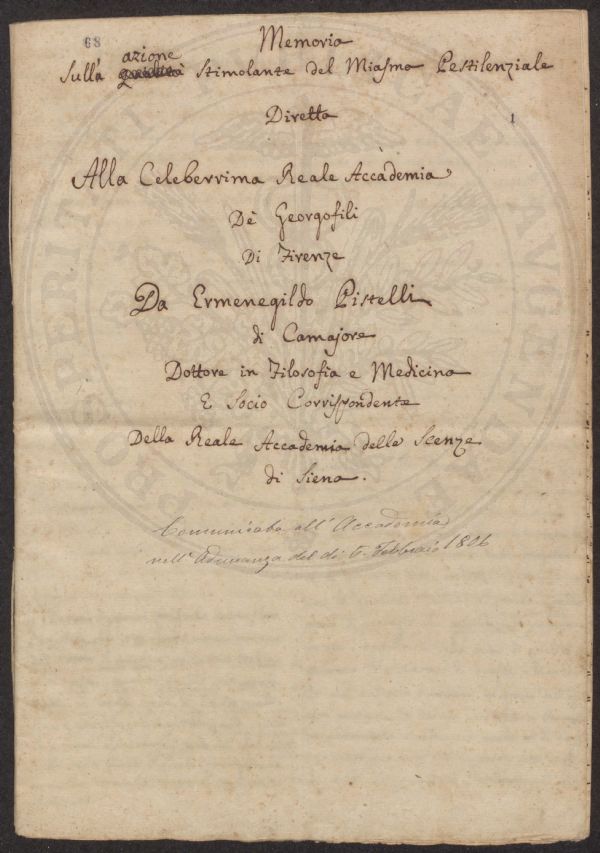 68
Memoria
azione
Sulla stimolante del Miasma Pestilenziale
Diretta
1
Alla Celeberrima Reale Accademia
De' Georgofili
Di Firenze
Da Ermenegildo Pistelli
di Camajore
Dottore in Filosofia e Medicina
E Socio Corrispondente
Della Reale Accademia delle Scenze
di Siena.
Comunicata all'Accademia
nell'Adunanza del dì Febbraio 1806
PROSPERITATI PUBLICAE AUGENDAE